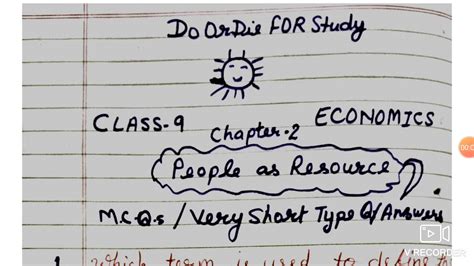 Do Or Die FOR Study
CLASS-9 Chapter-2 ECONOMICS
People as Resource
M.C.Q.s / Very Short Type Q/Answers
V RECORDER
1. which term is used to define th